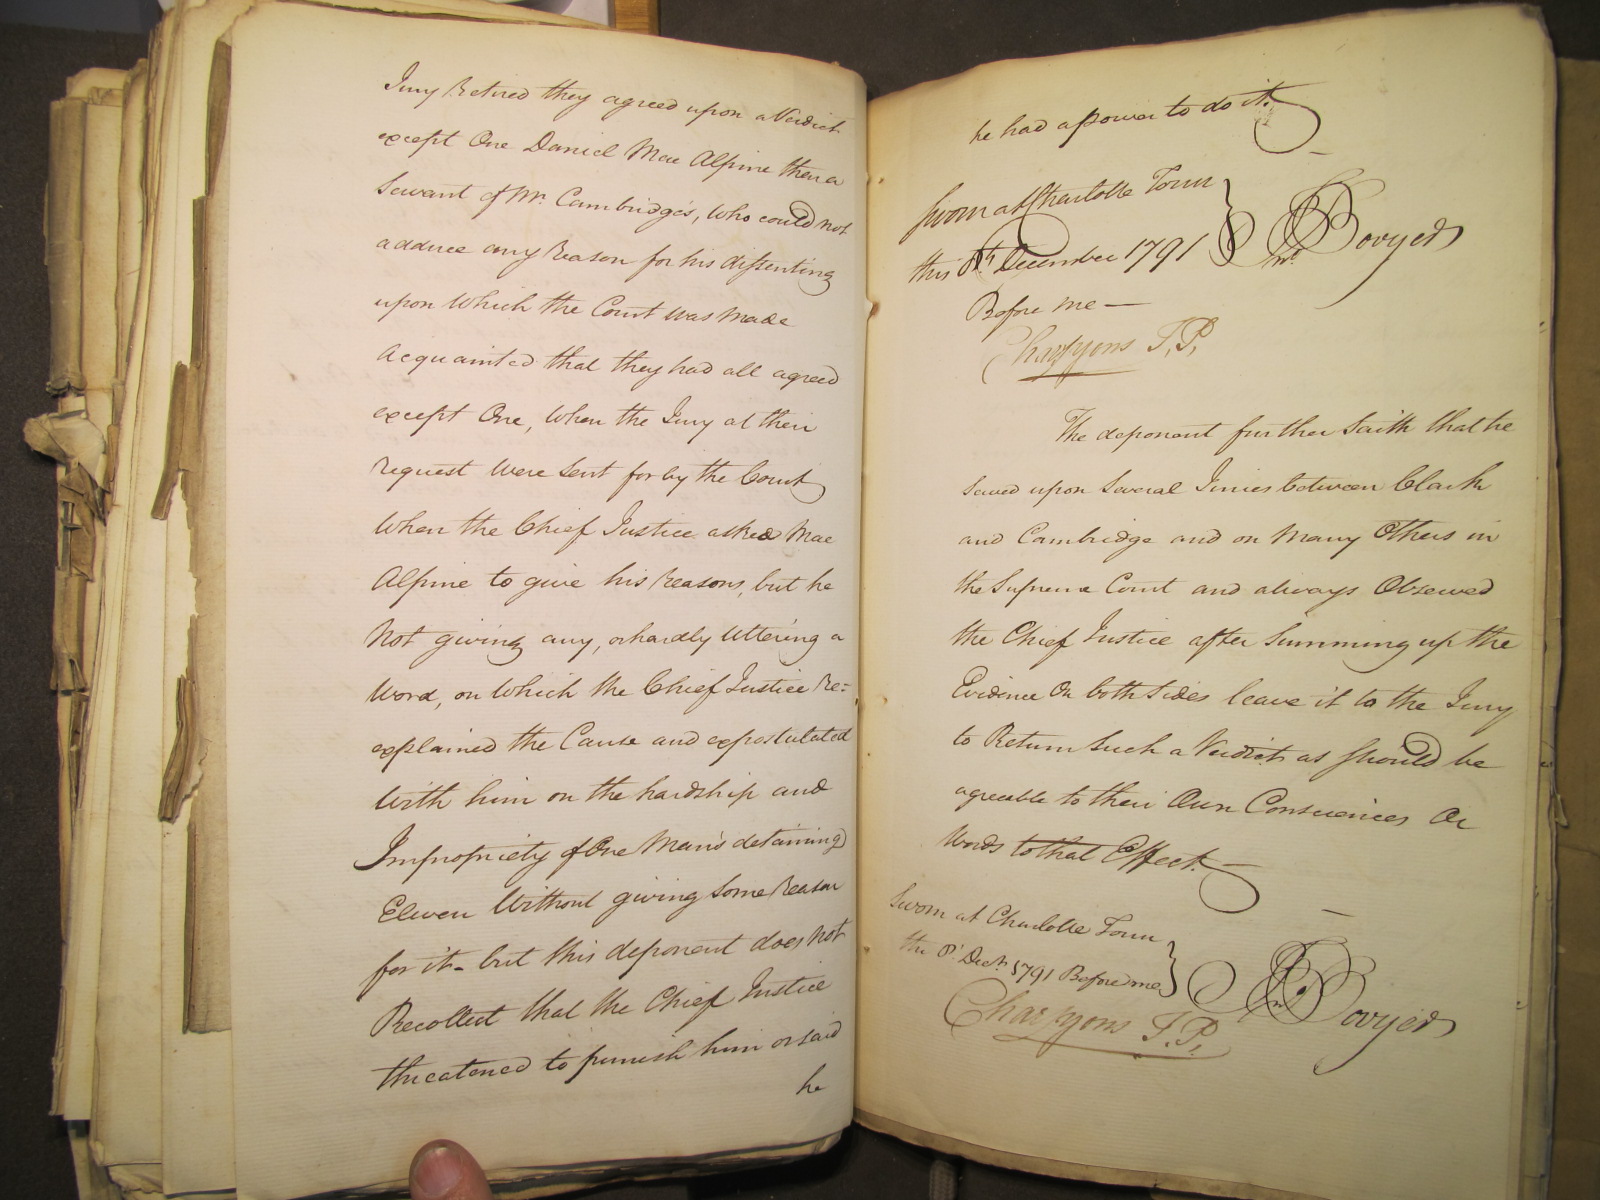 Jury Retired they agreed upon a Verdict
except One Daniel Mac Alpine then a
Servant of Mr. Cambridge's, Who could not
adduce any Reason for his dissenting
upon Which the Court was Made
Acquainted that they had all agreed
except One, When the Jury at their
request Were Sent for by the Court
When the Chief Justice asked Mac
Alpine to give his Reasons, but he
Not giving any, or hardly Uttering a
Word, on Which the Chief Justice Re=
explained the Cause and expostulated
With him on the hardship and
Impropriety of One Man's detaining
Eleven Without giving Some Reason
for it - but this deponent does Not
Recollect that the Chief Justice
threatened to punish him or said
he
he had a power to do it.
Sworn at Charlotte Town
this 8th December 1791
Wm. Bovyer
Before Me —
Chas Lyons J.P.
The deponent further Saith that he
Served upon Several Juries between Clark
and Cambridge and on Many Others in
the Supreme Court and always Observed
the Chief Justice after Summing up the
Evidence On both Sides leave it to the Jury
to Return Such a Verdict as Should be
agreeable to their Own Consciences Or
Words to that Effect. —
Sworn at Charlotte Town
the 8th Decr. 1791 Before me
Wm. Bovyer
Chas Lyons J.P.